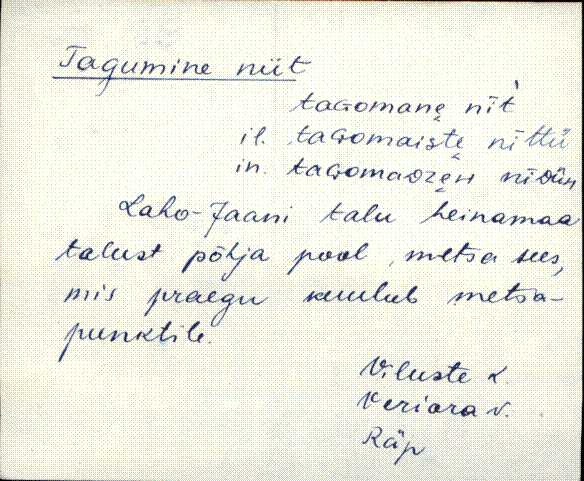 Tagumine niit
taGomane̬ nīt̀
il. taGomaiste̬ nīttü
in. taGomaDze̬н nīDüн
Laho-Jaani talu heinamaa
talust põhja pool, metsa sees,
mis praegu kuulub metsa-
punktile.
Viluste k.
Veriora v.
Räp